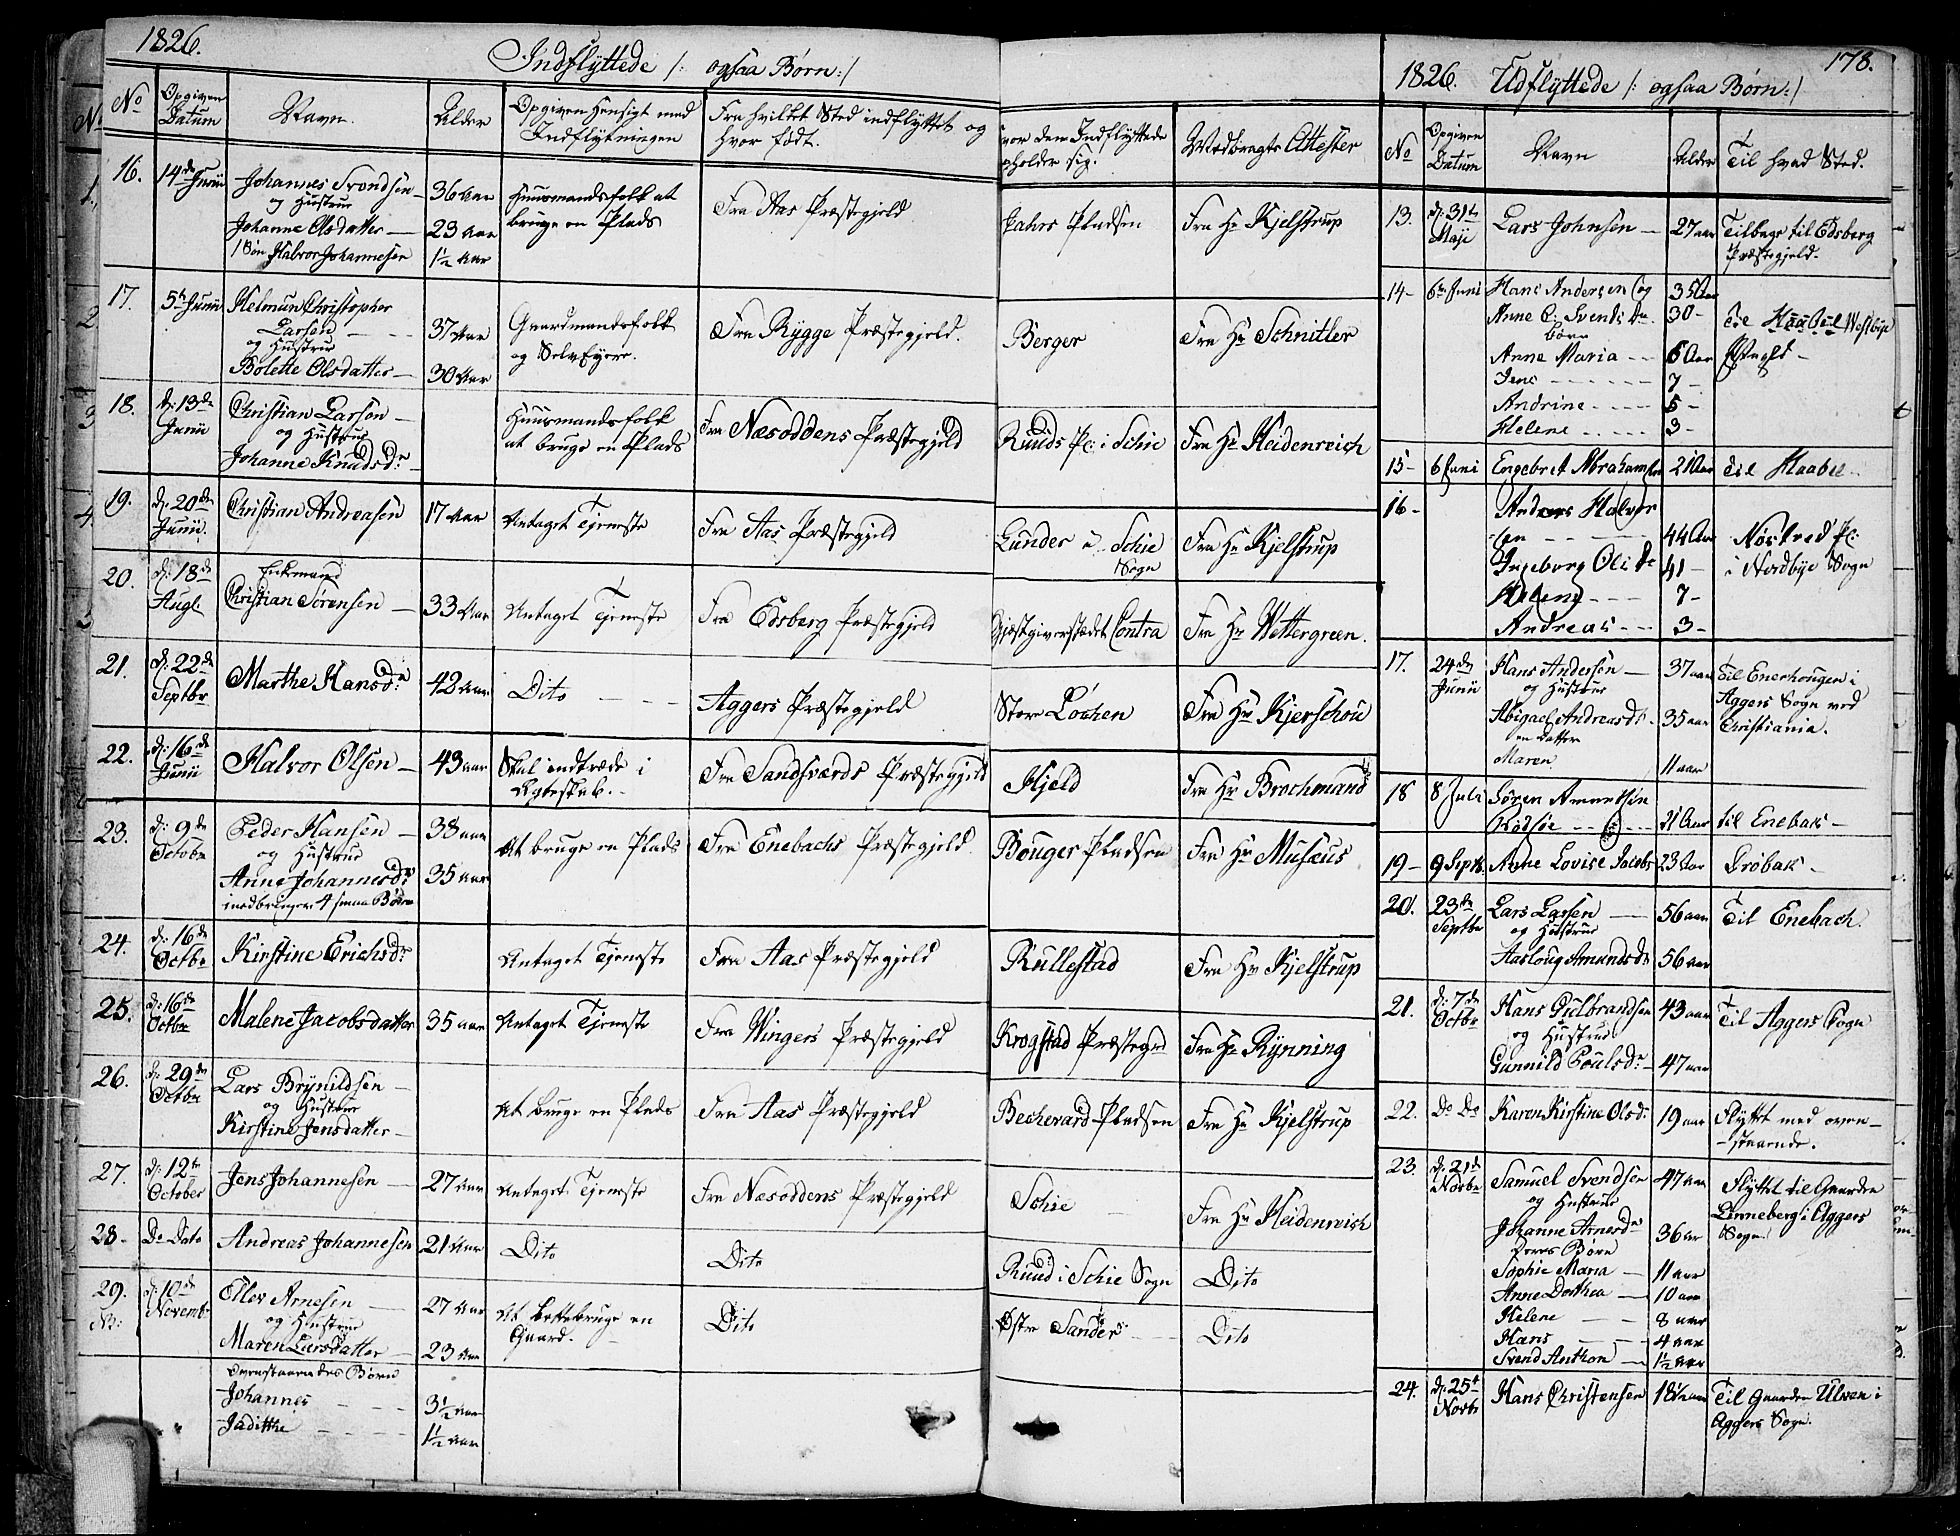 1826.
Indflyttede /: ogsaa Børn :/
No
Opgiven Datum
Navn.
Alder
Opgiven Hensigt med Indflytningen
Fra hvilket Sted indflyttet og hvor født.
hvor den Indflyttede opholder sig.
Medbragte Attester
16. 14de Junii Johannes Svendsen 36 Aar Huusmandsfolk at bruge en Plads Fra Aas Præstegjeld Pladsen Fra Hr Kjelstrup
og Hustrue
Johanne Olsdatter 23 Aar
1 Søn Halvor Johannesen 1½ Aar
17. 5te Junii Helmun Christopher Larsen 37 Aar Gaardmandsfolk og Selv Eyere. Fra Rygge Præstegjeld. Berger Fra Hr Schnitler
og Hustrue
Bolette Olsdatter 30 Aar
18. d: 13de Junii Christian Larsen Huusmandsfolk at bruge en Plads Fra Næsoddens Præstegjeld Ruuds Pl: i Schie Fra Hr Heidenreich
og Hustrue
Johanne Knudsdr
19. d: 20de Junii. Christian Andreasen 17 Aar Antaget Tjeneste Fra Aas Præstegjeld Lunder i Schie Sogn Fra Hr Kjelstrup
20. d: 18de Augt. Enkemand Christian Sørensen 33 Aar Antaget Tjeneste Fra Edsberg Præstegjeld Gjæstgiverstædet Contra Fra Hr Wettergreen.
21. d: 22de Septbr Marthe Hansdr 42 Aar Dito Aggers Præstegjeld Store Løchen Fra Hr Kjerschou
22. d: 16de Junii Halvor Olsen 43 aar Skal indtræde i Ægteskab. Fra Sandsværds Præstegjeld Hjeld Fra Hr Brochmand
23. d: 9de Octobr Peder Hansen 38 aar At bruge en Plads Fra Enebachs Præstegjeld Bouger Pladsen Fra Hr Musæus
og Hustrue
Anne Johannesdr 35 aar
medbringer 4 smaa Børn
24. d: 16de Octbr Kirstine Erichsdr Antaget Tjeneste Fra Aas Præstegjeld Rullestad Fra Hr Kjelstrup
25. d: 16de Octbr Malene Jacobsdatter 35 aar Antaget Tjeneste Fra Wingers Præstegjeld Krogstad Præstegrd Fra Hr Rynning
26. d: 29de Octbr Lars Brynildsen At bruge en Plads Fra Aas Præstegjeld Bechevard Pladsen Fra Hr Kjelstrup
og Hustrue
Kirstine Jensdatter
27. d: 12te October Jens Johannesen 27 Aar Antaget Tjeneste Fra Næsoddens Præstegjeld Schie Fra Hr Heidenreich
28. Do Dato Andreas Johannesen 21 Aar Dito Dito Ruud i Schie Sogn Dito
29. d: 10de Novembr Ellev Arnesen 27 Aar At bruge en Gaard. Dito Østre Sander Dito
NB: og Hustrue
Maren Larsdatter 23 Aar
Ovenstaaendes Børn
Johannes 3½ aar
Jaditthe 1½ aar
178.
1826. Udflyttede /: ogsaa Børn :/
No
Opgiven Datum
Navn
Alder
Til hvad Sted.
13. d: 31te Maji Lars Johnsen 27 aar Tilbage til Edsberg Præstegjeld.
14 6te Juni Hans Andersen og 35 Aar Til Haabøl Westbye Pgjld
Anne C: Svends Da 30
børn
Anne Maria 6 Aar
Jens 7
Andrine 5
Helene 3
15 6 Juni Engebret Abrahamsen 21 Aar Til Haabøl
16 Anders Halvorsen 44 Aar Nøstved Pl: i Nordbye Sogn
Ingeborg Ols Dr 41
Helene 7
Andreas 3
17. 24de Junii Hans Andersen 37 aar Til Enerhougen i Aggers Sogn ved Christiania.
og Hustrue
Abigael Andreasdr 35 aar
en Datter
Maren 11 aar
18 8 Juli Søren Amundsen 21 Aar til Enebak
19 9 Septb. Anne Lovise Jacobs 23 Aar Drøbak
20. 23de Septbr Lars Larsen 56 aar Til Enebach.
og Hustrue
Aasloug Amundsdr 56 aar
21. d: 7de Octbr Hans Gulbrandsen 43 aar Til Aggers Sogn
og Hustrue
Gunnild Poulsdr 47 aar
22. Do Do Karen Kirstine Olsdr 19 aar Flyttet med ovenstaaende.
23. d: 21de Novbr Samuel Svendsen 47 aar Flyttet til Gaarden Linneberg i Aggers Sogn.
og Hustrue
Johanne Arnesdr 36 ar
Deres Børn
Sophie Maria 11 aar
Anne Dorthea 10 aar
Helene 8 aar
Hans 4 aar
Svend Anthon 1½ aar
24. d: 25t Novbr Hans Christensen 18½ aar Til Gaarden Ulven i Aggers Sogn.